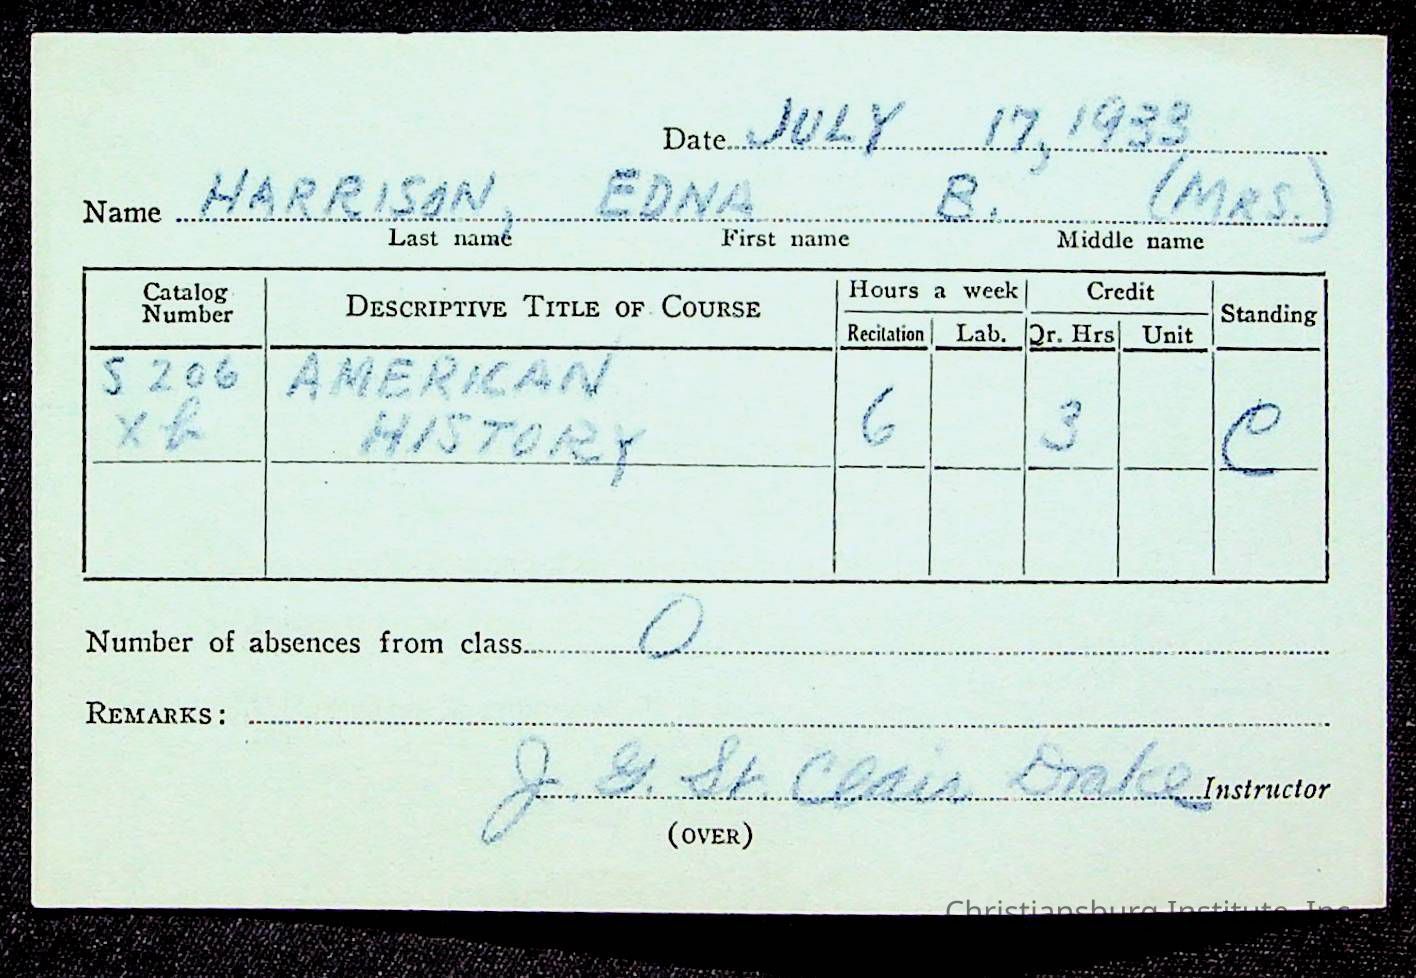 Date JULY 17, 1933
Name HARRISON, EDNA B. (MRS.)
Last name First name Middle name
Catalog Number DESCRIPTIVE TITLE OF COURSE Hours a week Credit Standing
Recitation Lab. Qr. Hrs Unit
S 206 AMERICAN
X b HISTORY 6 3 C
Number of absences from class 0
REMARKS:
J. G. St. Clair Drake Instructor
(OVER)
Christiansburg Institute, Inc.